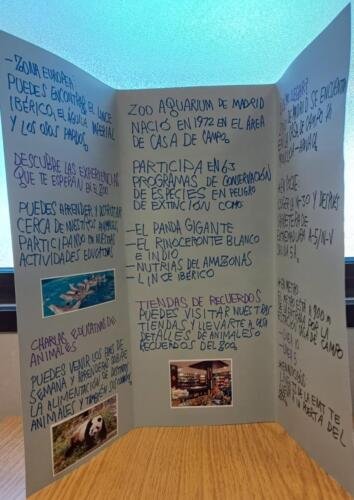 - ZONA EUROPEA
PUEDES ENCONTRAR EL LINCE
IBÉRICO, EL ÁGUILA IMPERIAL
Y LOS OSOS PARDOS.
DESCUBRE LAS EXPERIENCIAS
QUE TE ESPERAN EN EL ZOO
PUEDES APRENDER Y DISFRUTAR
CERCA DE NUESTROS ANIMALES
PARTICIPANDO EN NUESTRAS
ACTIVIDADES EDUCATIVAS
CHARLAS EDUCATIVAS DE
ANIMALES
PUEDES VENIR LOS FINES DE
SEMANA Y APRENDERÁS SOBRE
LA ALIMENTACIÓN DE DISTINTOS
ANIMALES Y TAMBIÉN SU
ZOO AQUARIUM DE MADRID
NACIÓ EN 1972 EN EL ÁREA
DE CASA DE CAMPO.
PARTICIPA EN 63
PROGRAMAS DE CONSERVACIÓN
DE ESPECIES EN PELIGRO
DE EXTINCIÓN COMO:
- EL PANDA GIGANTE
- EL RINOCERONTE BLANCO
E INDIO
- NUTRIAS DEL AMAZONAS
- LINCE IBÉRICO
TIENDAS DE RECUERDOS
PUEDES VISITAR NUESTRAS
TIENDAS Y LLEVARTE A CASA
DETALLES DE ANIMALES O
RECUERDOS DEL ZOO
LLEGAR?
SE ENCUENTRA
EN LA CASA DE CAMPO
EN COCHE:
Y DESPUÉS
CARRETERA DE
EXTREMADURA A-5/N-V
SALIDA 5A.
EN METRO
ESTÁ A 900 M
POR LA
CASA DE CAMPO
LÍNEA 10
LÍNEA 5
DE LA EMT TE
PUERTA DEL
ZOO